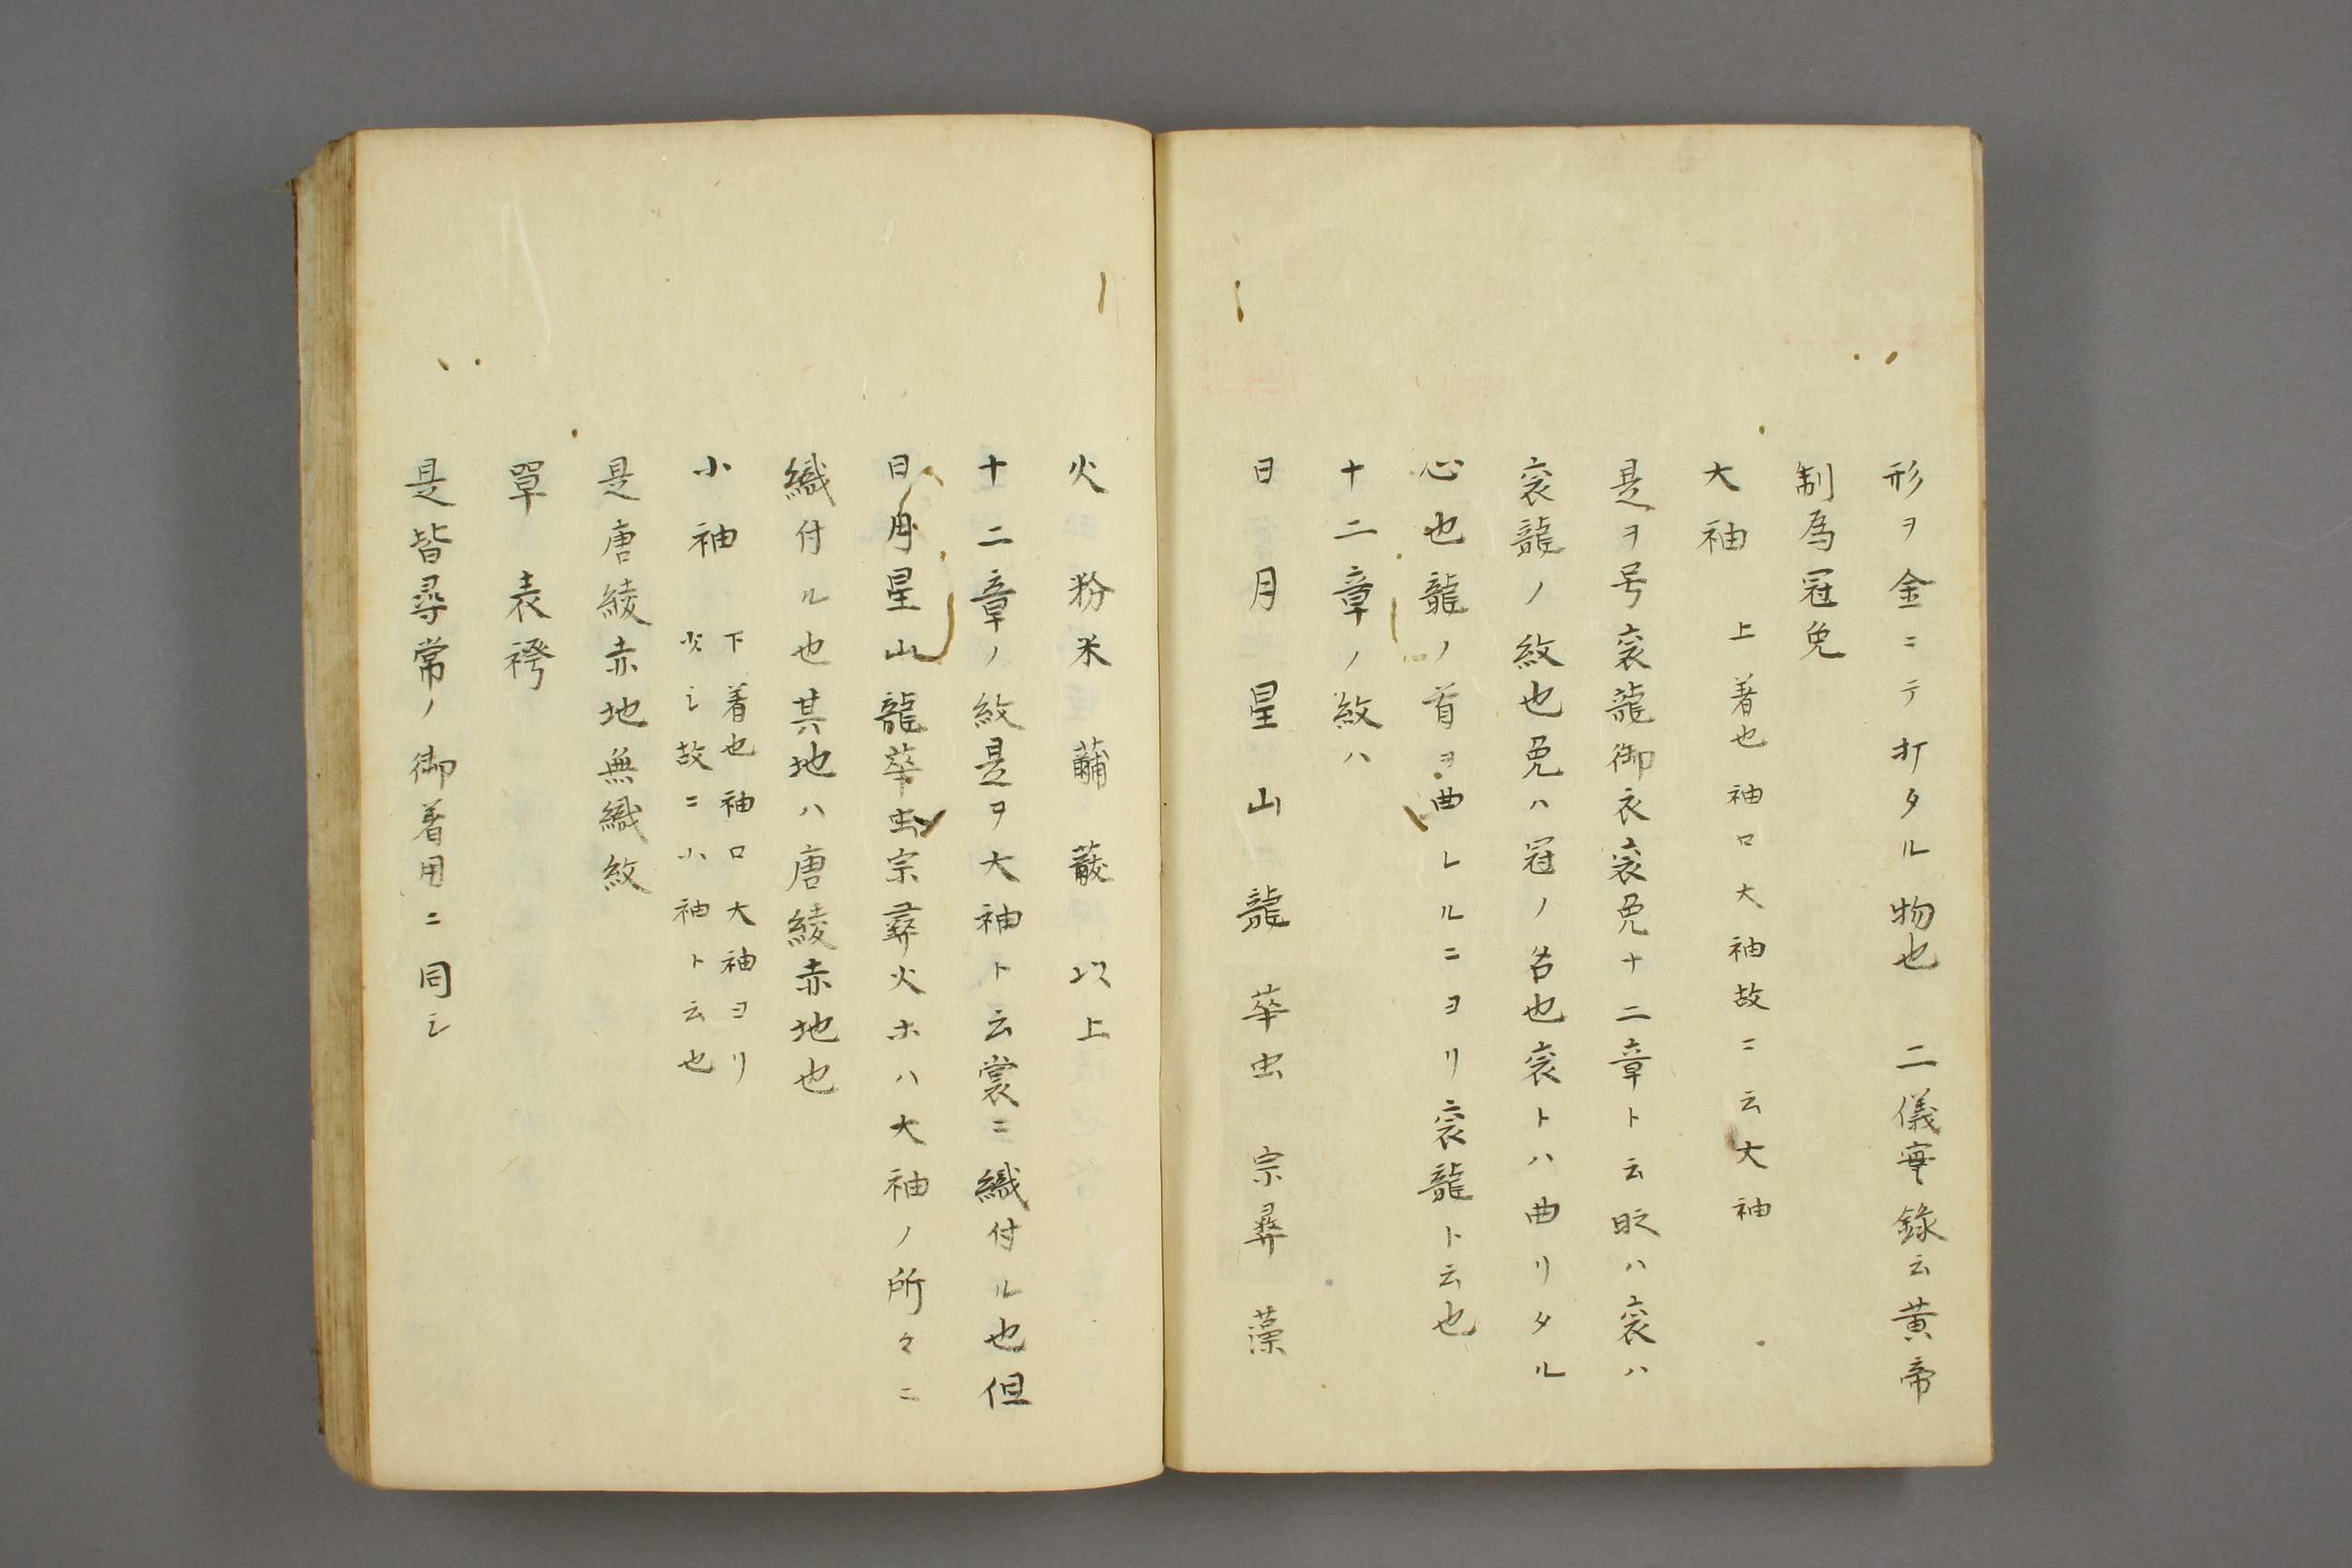 形ヲ金ニテ打タル物也　二儀實錄云黄帝
制為冠冕
大袖　上著也袖口大袖故ニ云大袖
是ヲ号衮龍御衣衮冕十二章ト云ハ衮ハ
衮龍ノ紋也冕ハ冠ノ名也衮トハ曲リタル
心也龍ノ首ヲ曲レルニヨリ衮龍ト云也
十二章ノ紋ハ
日　月　星　山　龍　華虫　宗彛　藻
火　粉米　黼　黻　以上
十二章ノ紋是ヲ大袖ト云裳ニ織付ル也但
日月星山龍華虫宗彛火ホハ大袖ノ所々ニ
織付ル也其地ハ唐綾赤地也
小袖　下着也袖口大袖ヨリ
少シ故ニ小袖ト云也
是唐綾赤地無織紋
單　表袴
是皆尋常ノ御着用ニ同シ